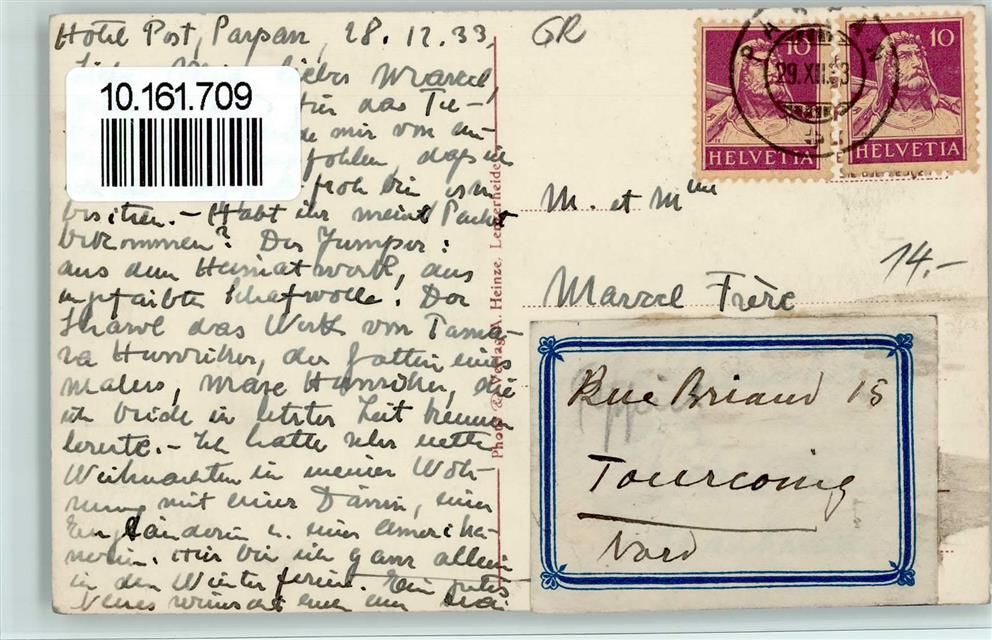 Hotel Post, Parpan, 28.12.33,
lieber Marcel,
für das Tie-
mir von
dass
froh bin
besitzen. – Habt ihr meine Packet
bekommen? Der Jumper:
aus dem Heimatwerk, aus
Schafwolle. Der
Shawl das Werk von Tama-
ra der Gattin eines
Malers, die
ich beide in letzter Zeit kennen
lernte. – Ich hatte sehr nette
Weihnachten in meiner Woh-
nung mit einer Dänin, einer
Engländerin u. einer Amerika-
nerin. Hier bin ich ganz allein
in den Winterferien. Ein gutes
Neues wünscht euch
10.161.709
Photo & Verlag A. Heinze, Lenzerheide
GR
10
HELVETIA
10
HELVETIA
PARPAN
29.XII.33
M. et Mme
14.-
Marcel Frère
Rue Briand 15
Tourcoing
Nord